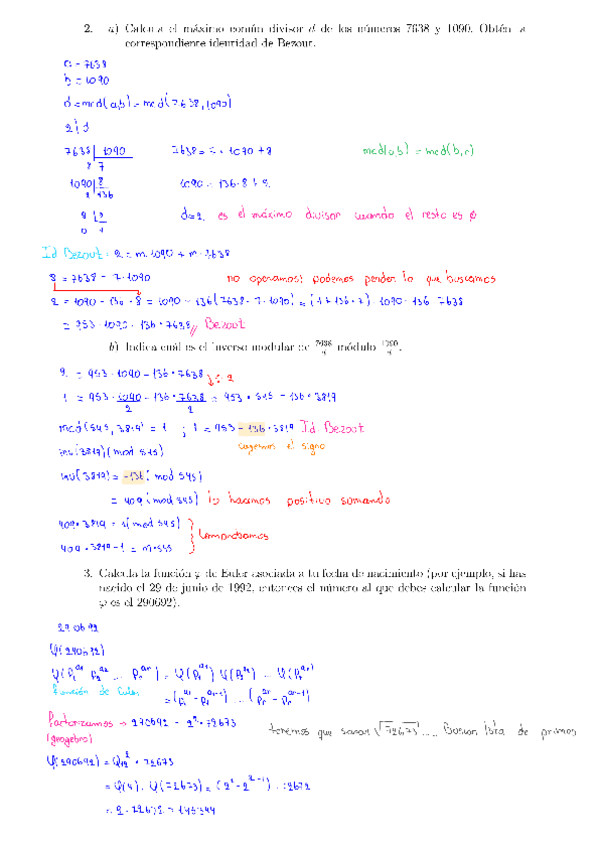 2. a) Calcula el máximo común divisor d de los números 7638 y 1090. Obtén la
correspondiente identidad de Bezout.
a = 7638
b = 1090
d = mcd(a,b) = mcd(7638, 1090)
2 | d
7638 | 1090 7638 = 7 · 1090 + 8 mcd(a,b) = mcd(b,r)
8 7
1090 | 8 1090 = 136·8 + 2
2 136
8 | 2 d=2 es el máximo divisor cuando el resto es 0
0 4
Id Bezout: 2 = m·1090 + n·7638
8 = 7638 - 7·1090 no operamos! podemos perder lo que buscamos
2 = 1090 - 136·8 = 1090 - 136(7638 - 7·1090) = (1+136·7) 1090 - 136·7638
= 953·1090 - 136·7638 // Bezout
b) Indica cuál es el inverso modular de 7638/2 módulo 1090/2.
2 = 953·1090 - 136·7638 ÷2
1 = 953·1090/2 - 136·7638/2 = 953·545 - 136·3819
mcd(545, 3819) = 1 ; 1 = 953 - 136·3819 Id. Bezout
inv(3819)(mod 545) cogemos el signo
inv(3819) = -136(mod 545)
= 409(mod 545) lo hacemos positivo sumando
409·3819 = 1(mod 545)
409·3819 - 1 = m·545 comprobamos
3. Calcula la función φ de Euler asociada a tu fecha de nacimiento (por ejemplo, si has
nacido el 29 de junio de 1992, entonces el número al que debes calcular la función
φ es el 290692).
290692
φ(290692)
φ(p₁^a₁ p₂^a₂ ... pᵣ^aᵣ) = φ(p₁^a₁) φ(p₂^a₂) ... φ(pᵣ^aᵣ)
Función de Euler = (p₁^a₁ - p₁^a₁-1) ... (pᵣ^aᵣ - pᵣ^aᵣ-1)
Factorizamos → 290692 = 2²·72673 tenemos que sacar √72673 .... Buscar lista de primos
(geogebra)
φ(290692) = φ(2² · 72673
= φ(4) · φ(72673) = (2² - 2²⁻¹) · 72672
= 2 · 72672 = 145344